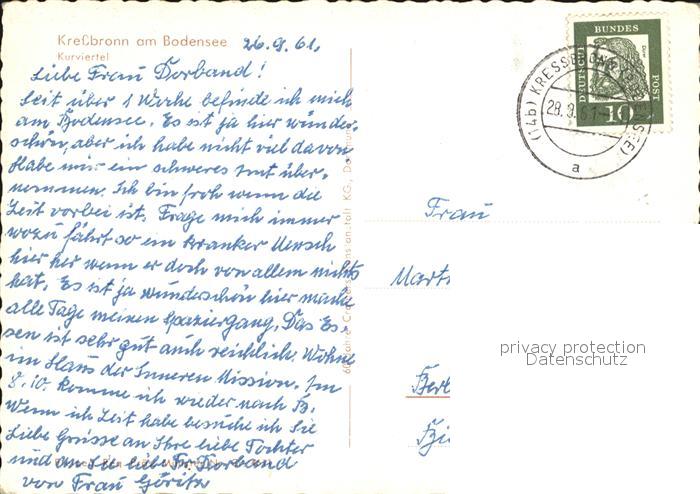 Kreßbronn am Bodensee 26.9.61.
Kurviertel
Liebe Frau Dorband!
Seit über 1 Woche befinde ich mich
am Bodensee. Es ist ja hier wunder-
schön, aber ich habe nicht viel davon
Habe mir ein schweres Amt über-
nommen. Ich bin froh wenn die
Zeit vorbei ist. Frage mich immer
wozu fährt so ein kranker Mensch
hier her wenn er doch von allem nichts
hat. Es ist ja wundeschön hier mache
alle Tage meinen Spaziergang. Das Es-
sen ist sehr gut auch reichlich. Wohne
im Haus der Inneren Mission. Am
8.10. komme ich wieder nach B.
Wenn ich Zeit habe besuche ich Sie
Liebe Grüsse an Ihre liebe Tochter
und an Sie liebe Fr. Dorband
von Frau Göritz
DEUTSCHE BUNDESPOST
10
28.9.61
a
Frau
Mart
Berl
privacy protection
Datenschutz